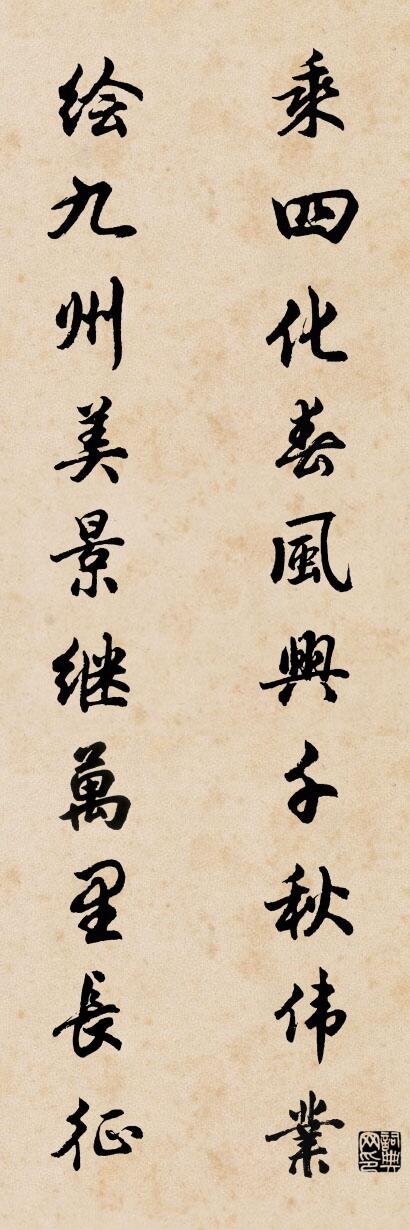 乘四化春風興千秋伟業
绘九州美景继萬里長征
詞典
网印